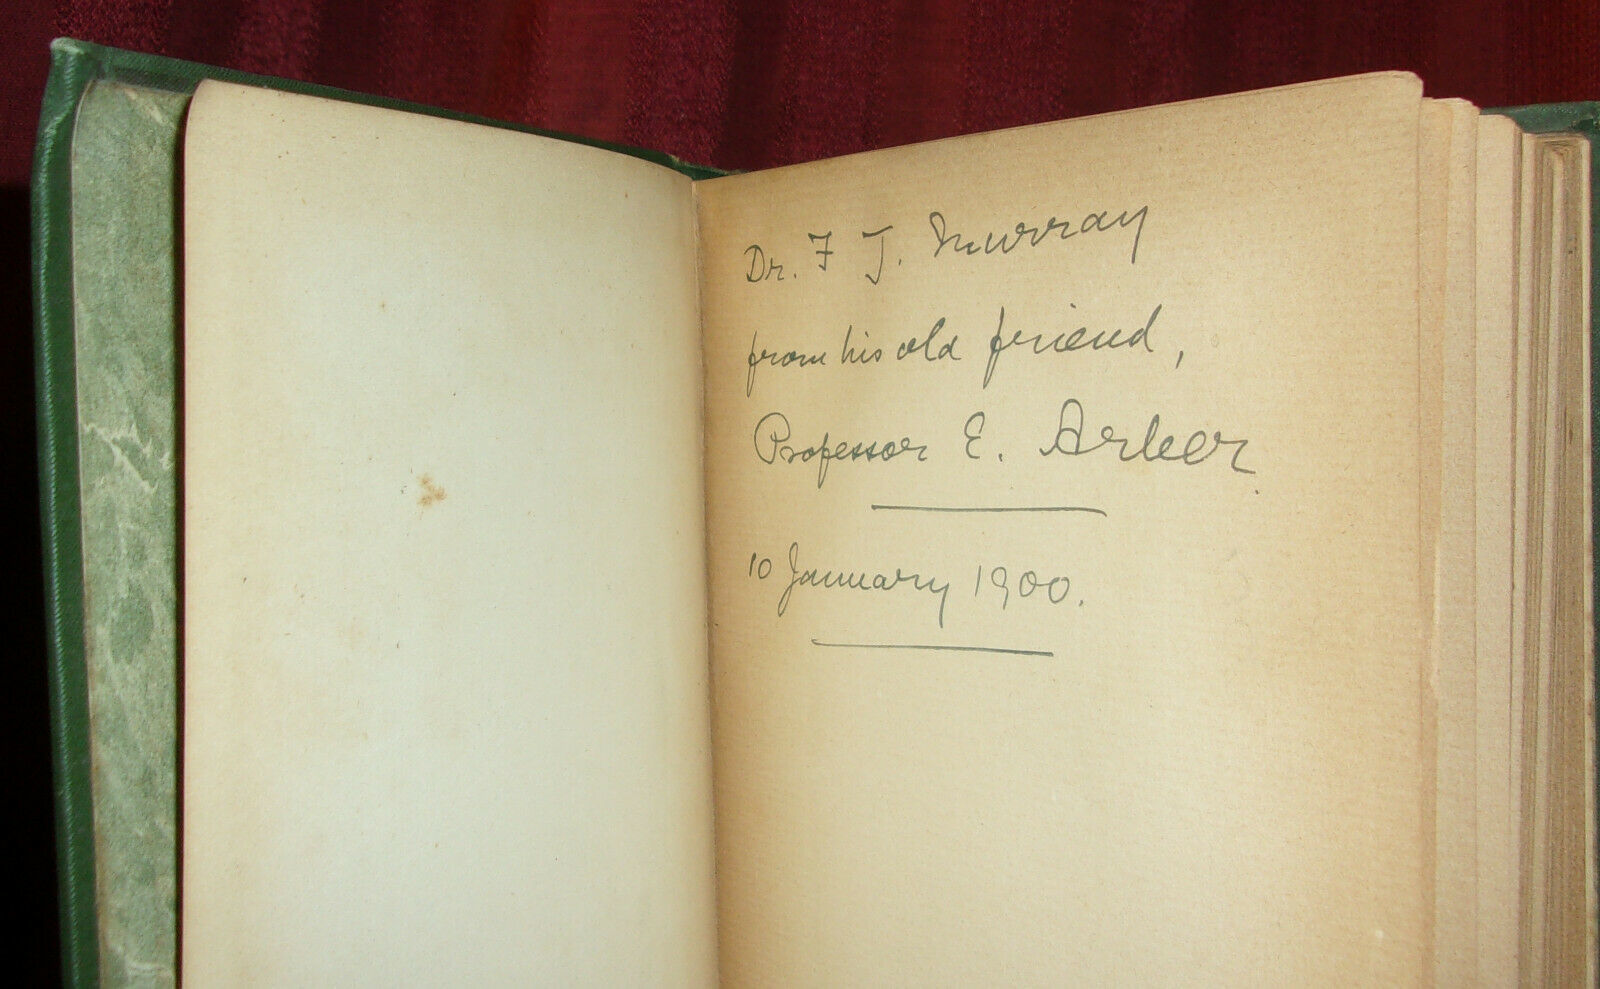 Dr. F J. Murray
from his old friend,
Professor E. Arber.
10 January 1900.